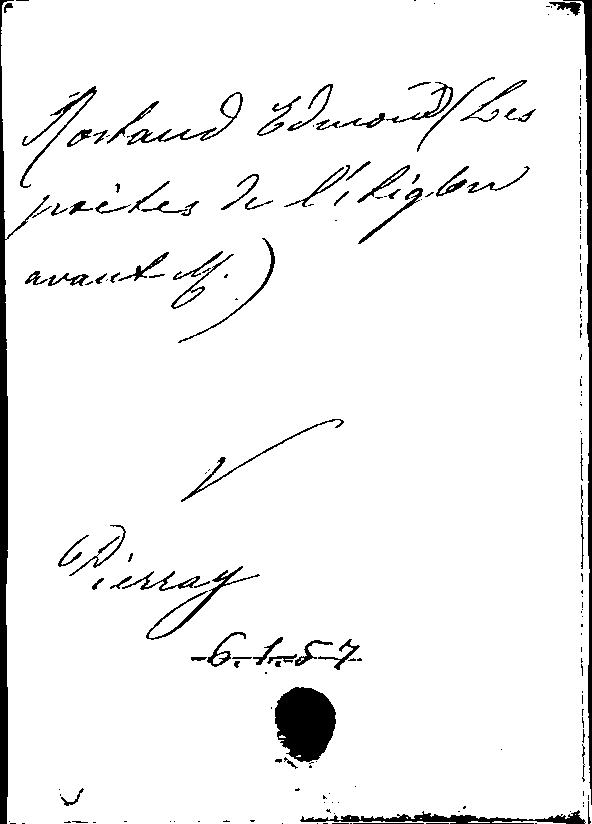 Rostand Edmond (Les
poètes de l'Aiglon
avant M.)
V
Pierray
6.1.57